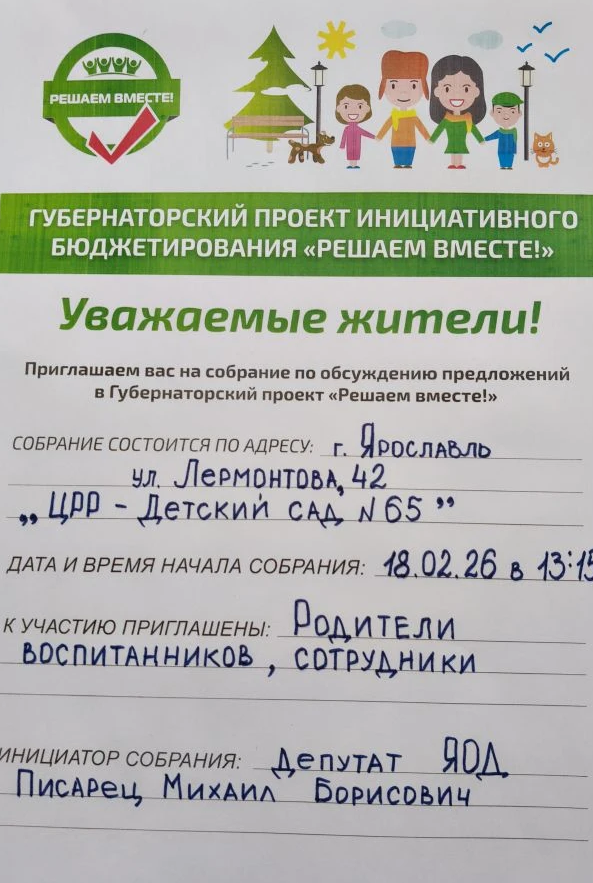 РЕШАЕМ ВМЕСТЕ!
ГУБЕРНАТОРСКИЙ ПРОЕКТ ИНИЦИАТИВНОГО
БЮДЖЕТИРОВАНИЯ «РЕШАЕМ ВМЕСТЕ!»
Уважаемые жители!
Приглашаем вас на собрание по обсуждению предложений
в Губернаторский проект «Решаем вместе!»
СОБРАНИЕ СОСТОИТСЯ ПО АДРЕСУ: г. Ярославль
ул. Лермонтова, 42
„ЦРР - Детский сад N65”
ДАТА И ВРЕМЯ НАЧАЛА СОБРАНИЯ: 18.02.26 в 13:15
К УЧАСТИЮ ПРИГЛАШЕНЫ: Родители
воспитанников, сотрудники
ИНИЦИАТОР СОБРАНИЯ: Депутат ЯОД
Писарец Михаил Борисович